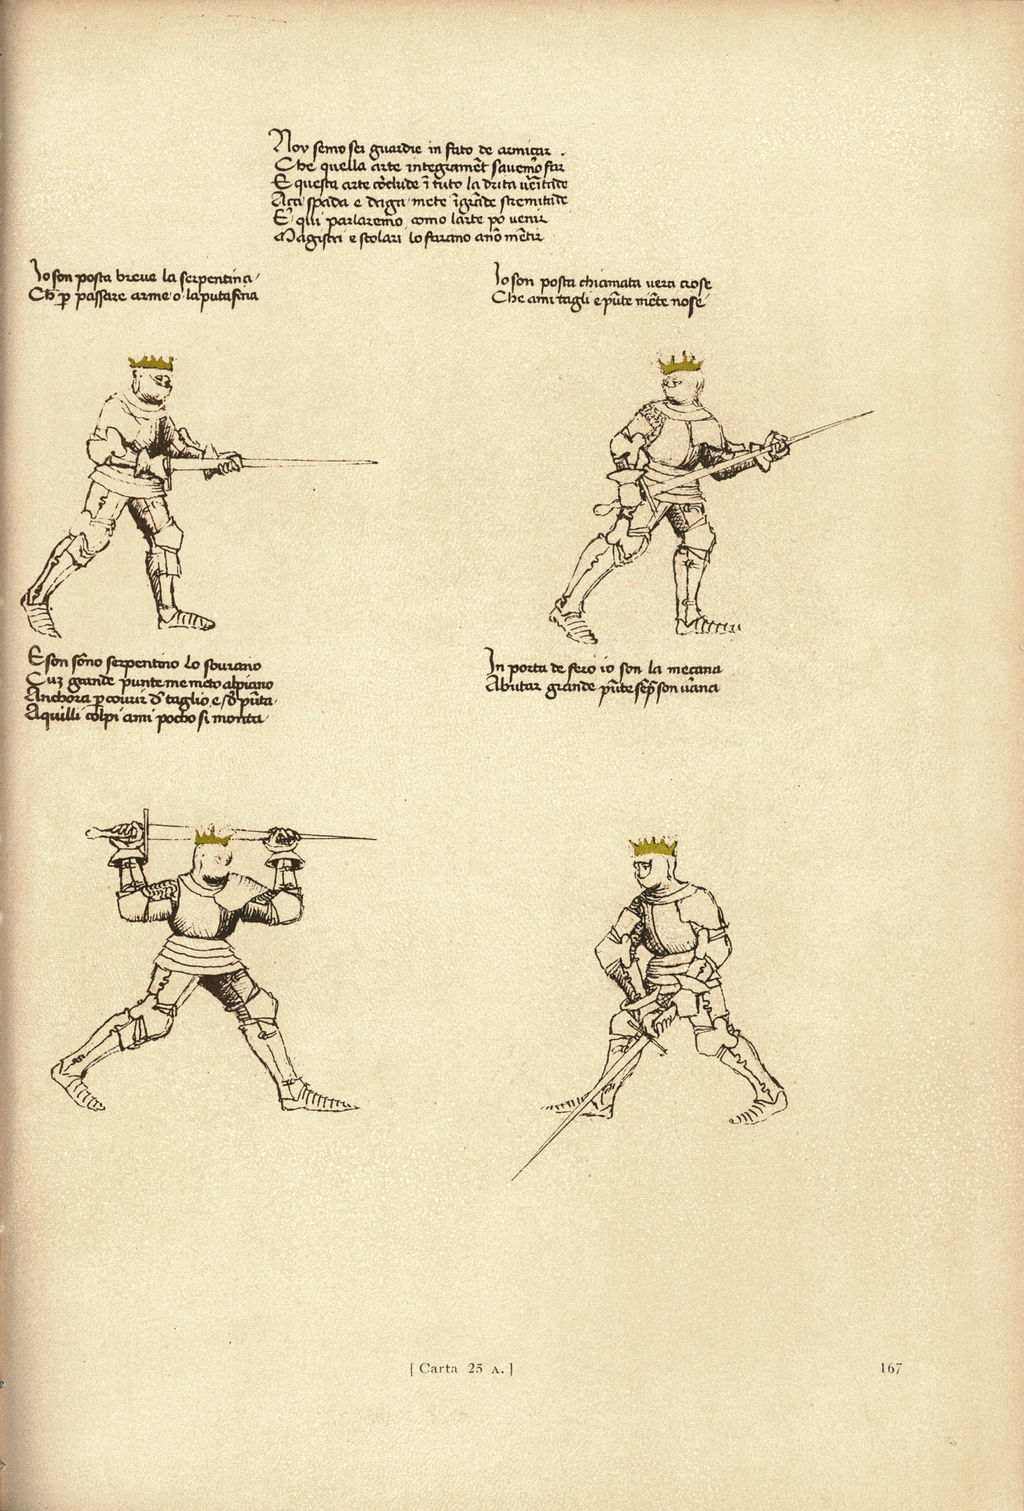 Noy semo sei guardie in fato de armiçar
Che quella arte integramẽt savemo far
E questa arte cõclude ĩ tuto la drita vẽitade
Açа spada e daga mete ĩ grãde stremitade
E qui parlaremo como larte po venir
Magistri e scolari lo farano anõ mẽtir
Io son posta breve la serpentina
Ch p passare arme o la puta fina
Io son posta chiamata vera crose
Che ami tagli e pũte mẽte nose
E son sõno serpentino lo sovrano
Cuz grande punte me meto al piano
Anchora p covrir d taglio e d pũta
A quilli colpi ami pocho si monta
In porta de fero io son la meçana
A butar grande pũte sẽp son vãna
[Carta 25 A.]
167